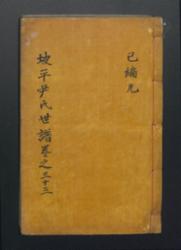 已編九
坡平尹氏世譜卷之三十三